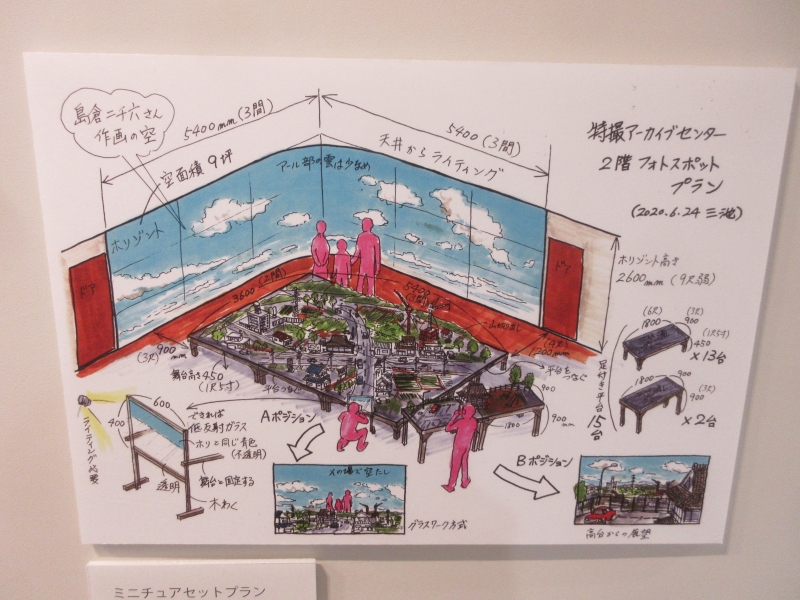 島倉二千六さん
作画の空
5400mm(3間)
5400(3間)
特撮アーカイブセンター
2階フォトスポット
プラン
(2020.6.24 三池)
空面積 9坪
アール部の雲は少なめ
天井からライティング
ホリゾント
ホリゾント高さ
2600mm(9尺弱)
ドア
ドア
3600(2間)
5400
(3尺)900mm
1200mm
舞台高さ450
(1尺5寸)
平台つなぐ
平台をつなぐ
900
900mm
1800
(6尺)
1800
(3尺)
900
(1尺5寸)
450
×13台
1800
900
(3尺)
900
×2台
足付き平台
15台
600
400
できれば
低反射ガラス
ホリと同じ青色
(不透明)
透明
舞台と固定する
木わく
ライティング必要
Aポジション
グラスワーク方式
Bポジション
高台からの展望
ミニチュアセットプラン